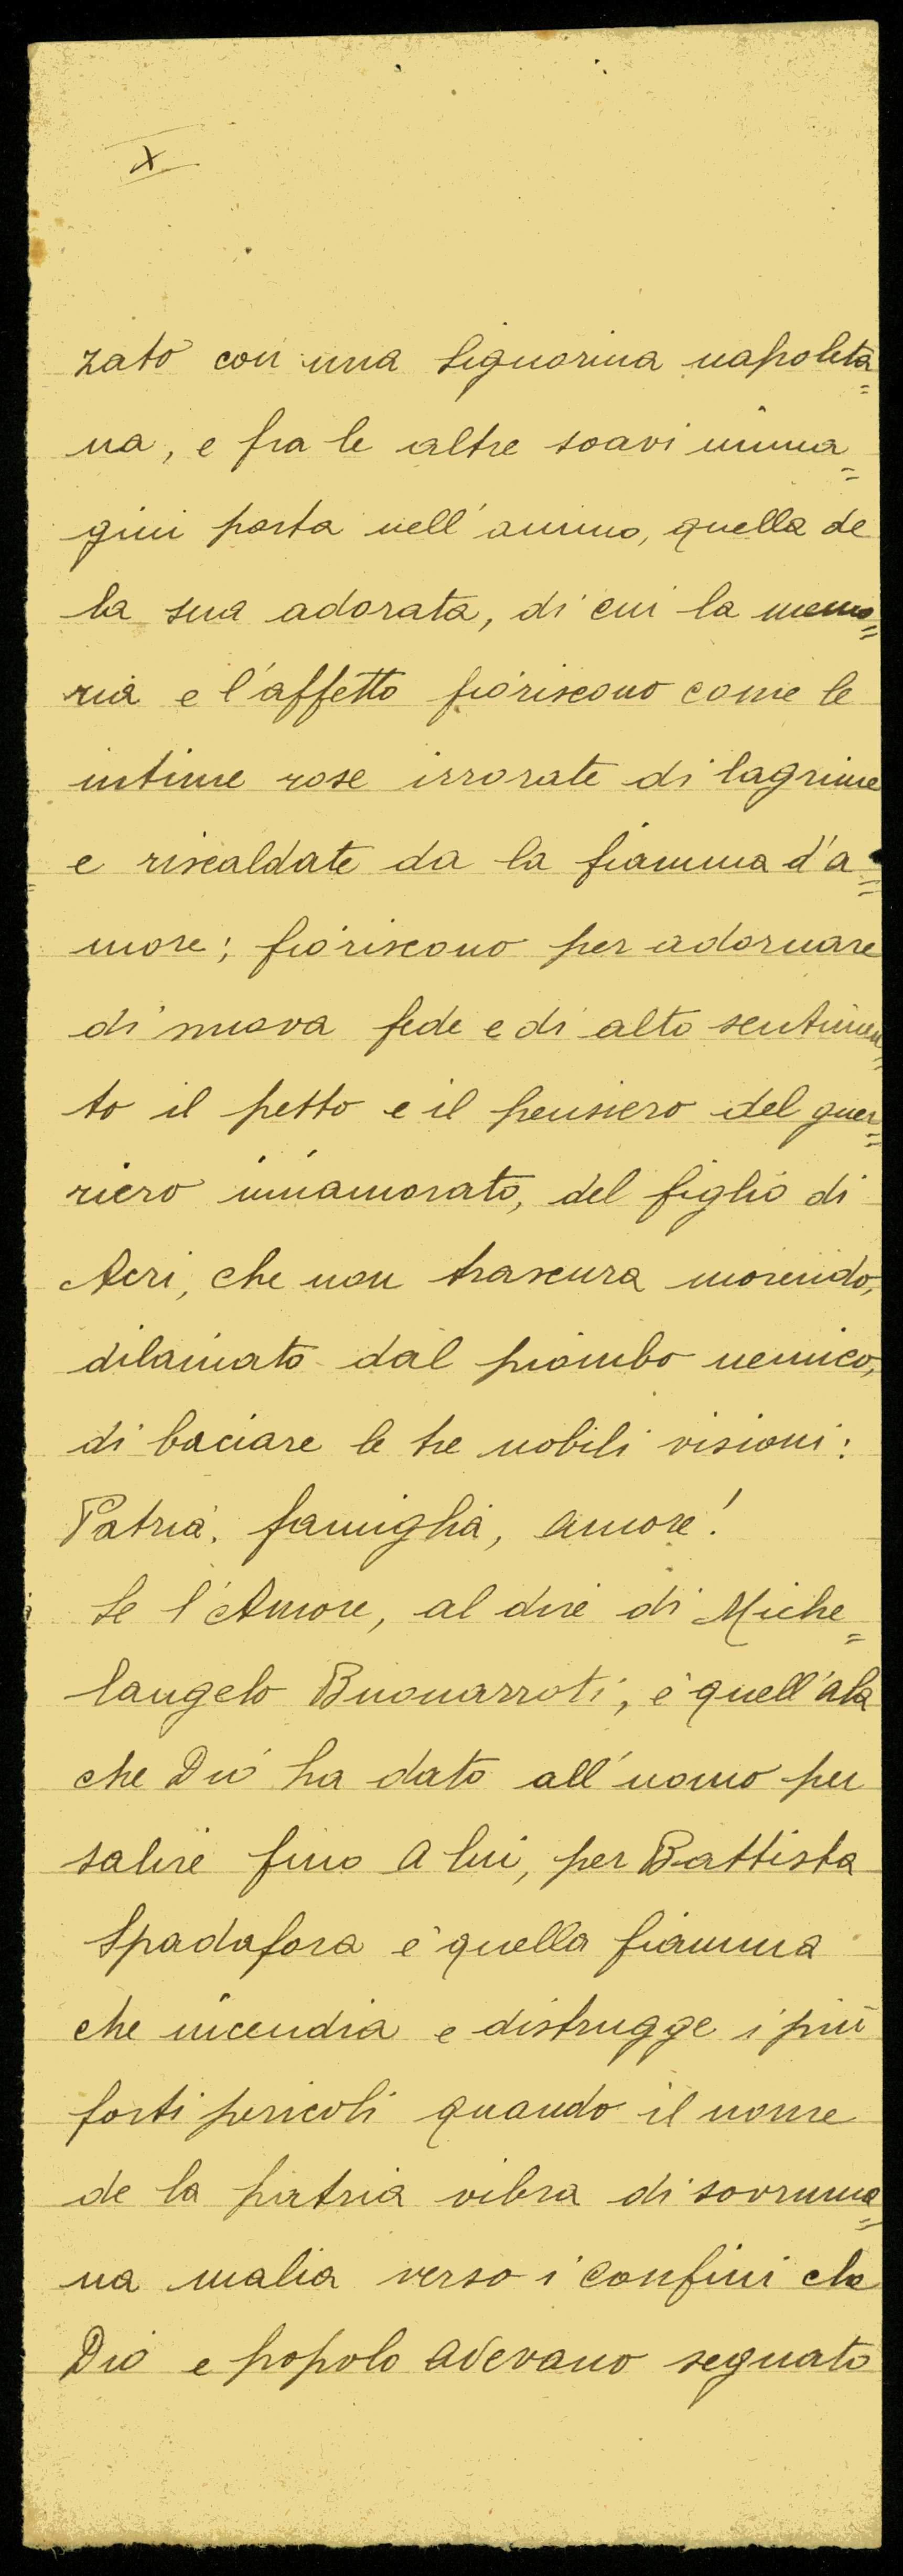 X
zato con una Signorina napoleta=
na, e fra le altre soavi imma=
gini porta nell'animo, quella de
la sua adorata, di cui la memo=
ria e l'affetto fioriscono come le
intime rose irrorate di lagrime
e riscaldate da la fiamma d'a=
more; fioriscono per adornare
di nuova fede e di alto sentimen=
to il petto e il pensiero del guer=
riero innamorato, del figlio di
Acri, che non trascura morendo,
dilaniato dal piombo nemico,
di baciare le tre nobili visioni:
Patria, famiglia, amore!
Se l'Amore, al dire di Miche=
langelo Buonarroti, è quell'ala
che Dio ha dato all'uomo per
salire fino a lui, per Battista
Spadafora è quella fiamma
che incendia e distrugge i più
forti pericoli quando il nome
de la patria vibra di sovruma=
na malia verso i confini che
Dio e popolo avevano segnato